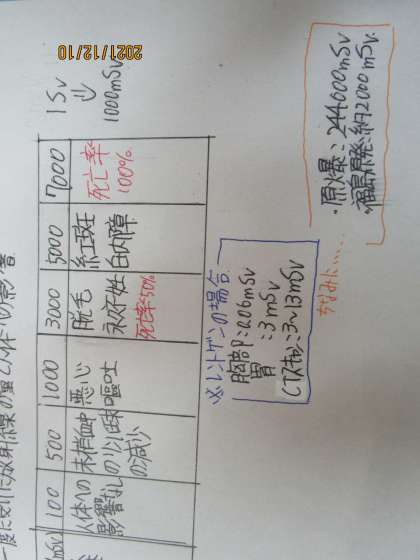 一度に受けた放射線の量と人体への影響
mSv
100
人体への
影響なし
500
末梢血中
のリンパ球
の減少
1000
悪心
嘔吐
3000
脱毛
永久不妊
死亡率50%
5000
紅斑
白内障
7000
死亡率
100%
1Sv
⇩
1000mSv
※レントゲンの場合
胸部:0.06mSv
胃:3mSv
CTスキャン:3~13mSv
ちなみに……
・原爆:244000mSv
・福島原発:約2000mSv
2021/12/10